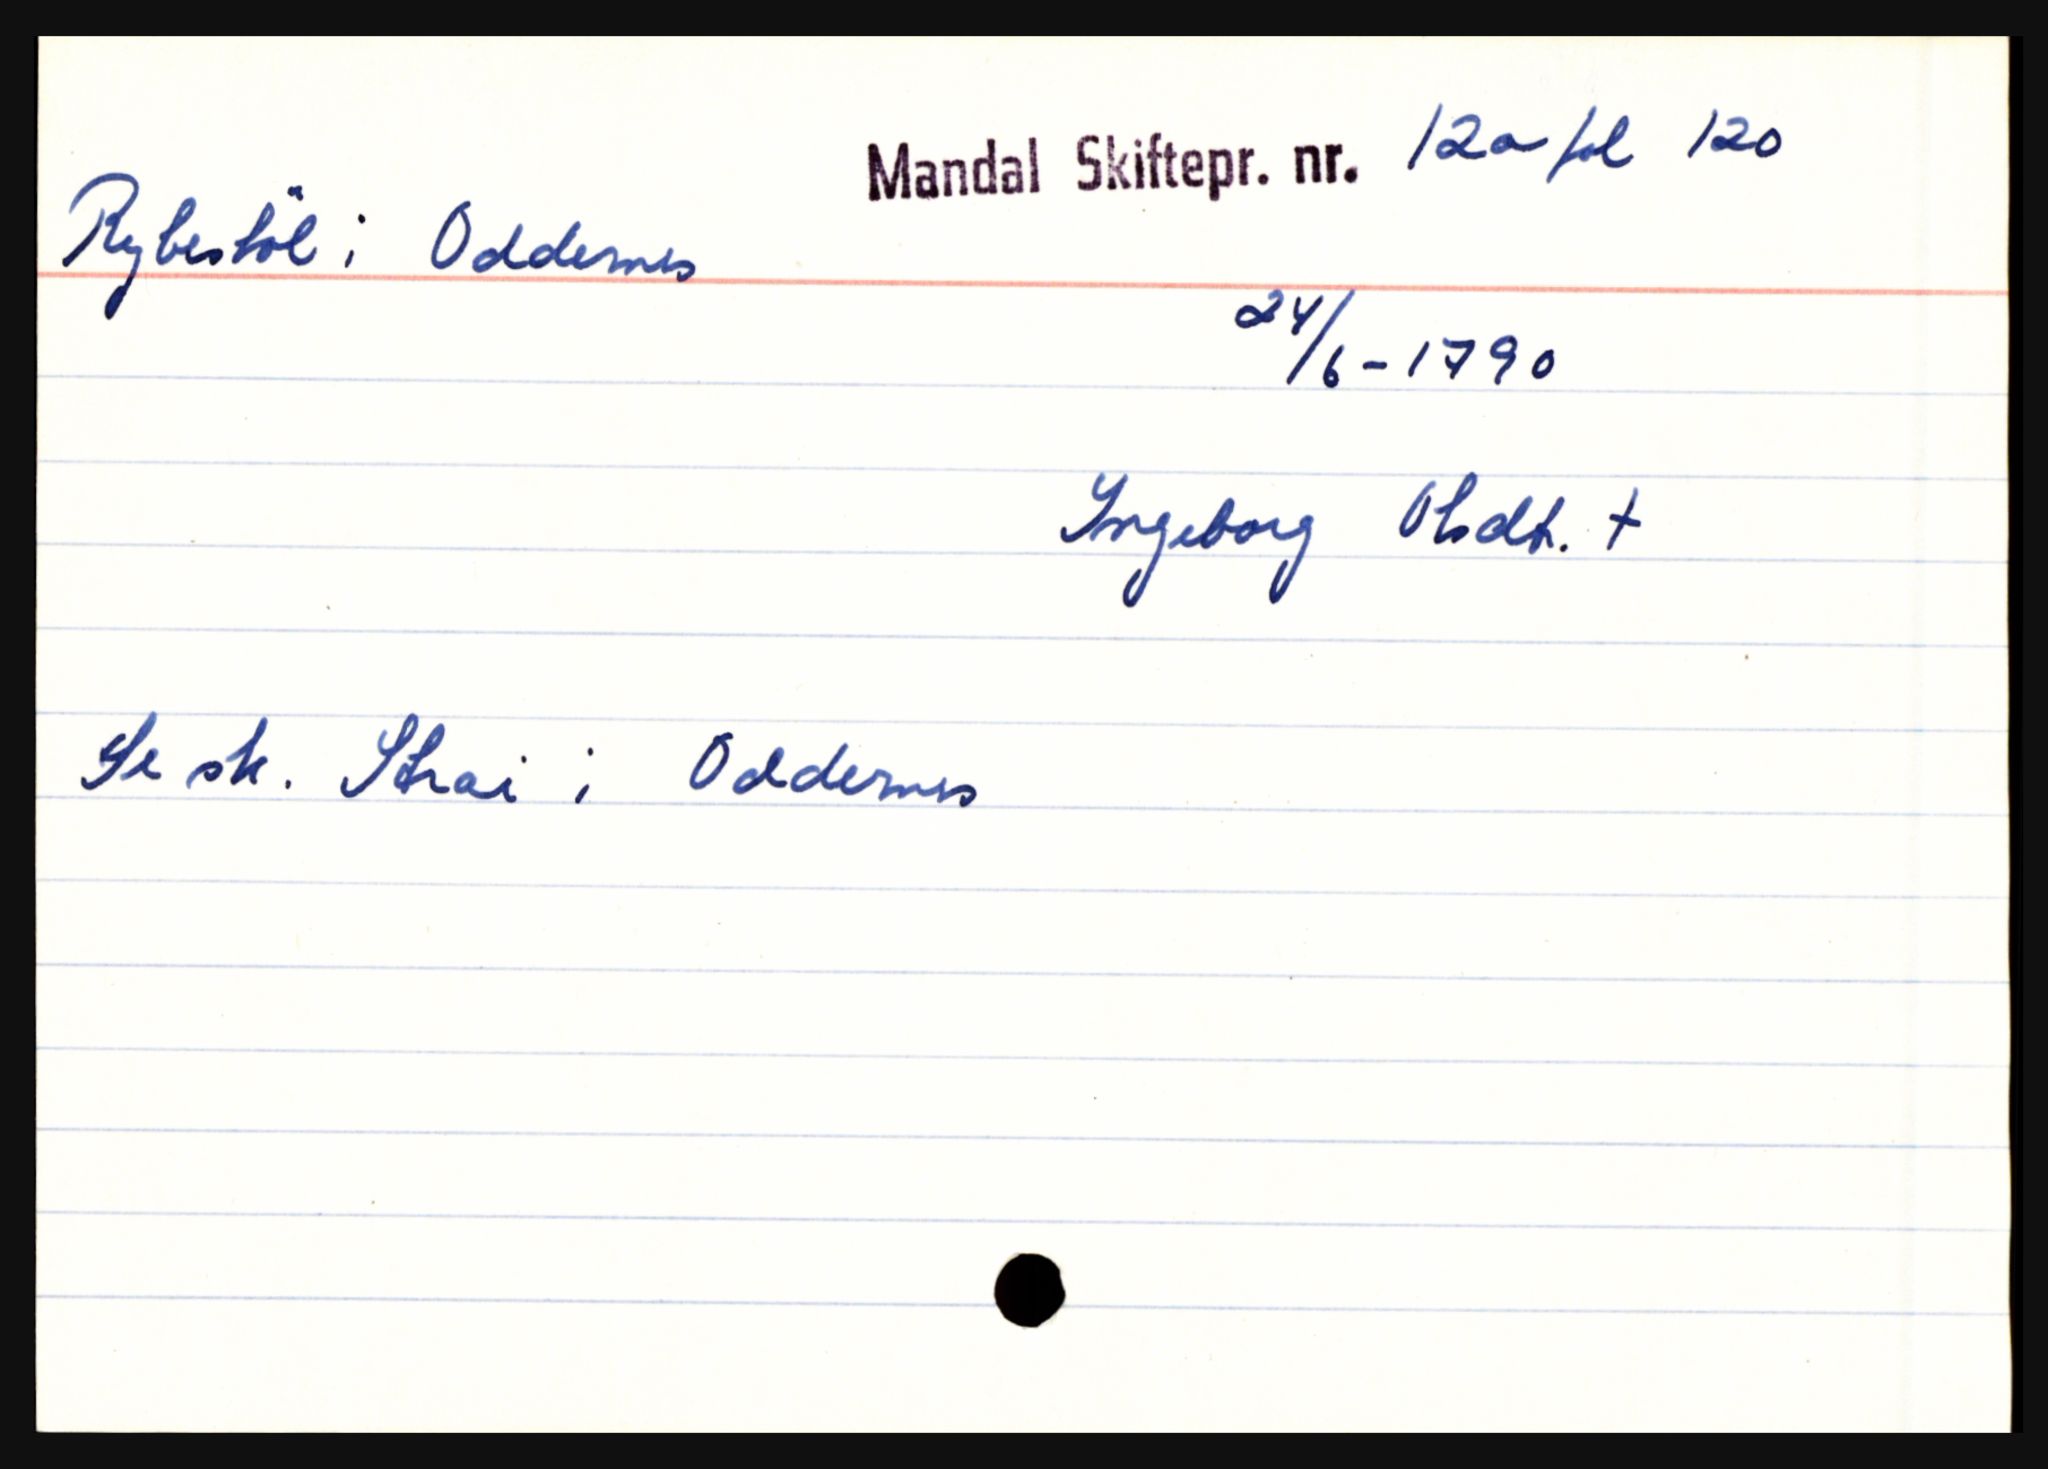 Mandal Skiftepr. nr. 12a fol 120
Rybestöl i Oddernes
24/6-1790
Ingeborg Olsdt. +
Se sk. Strai i Oddernes